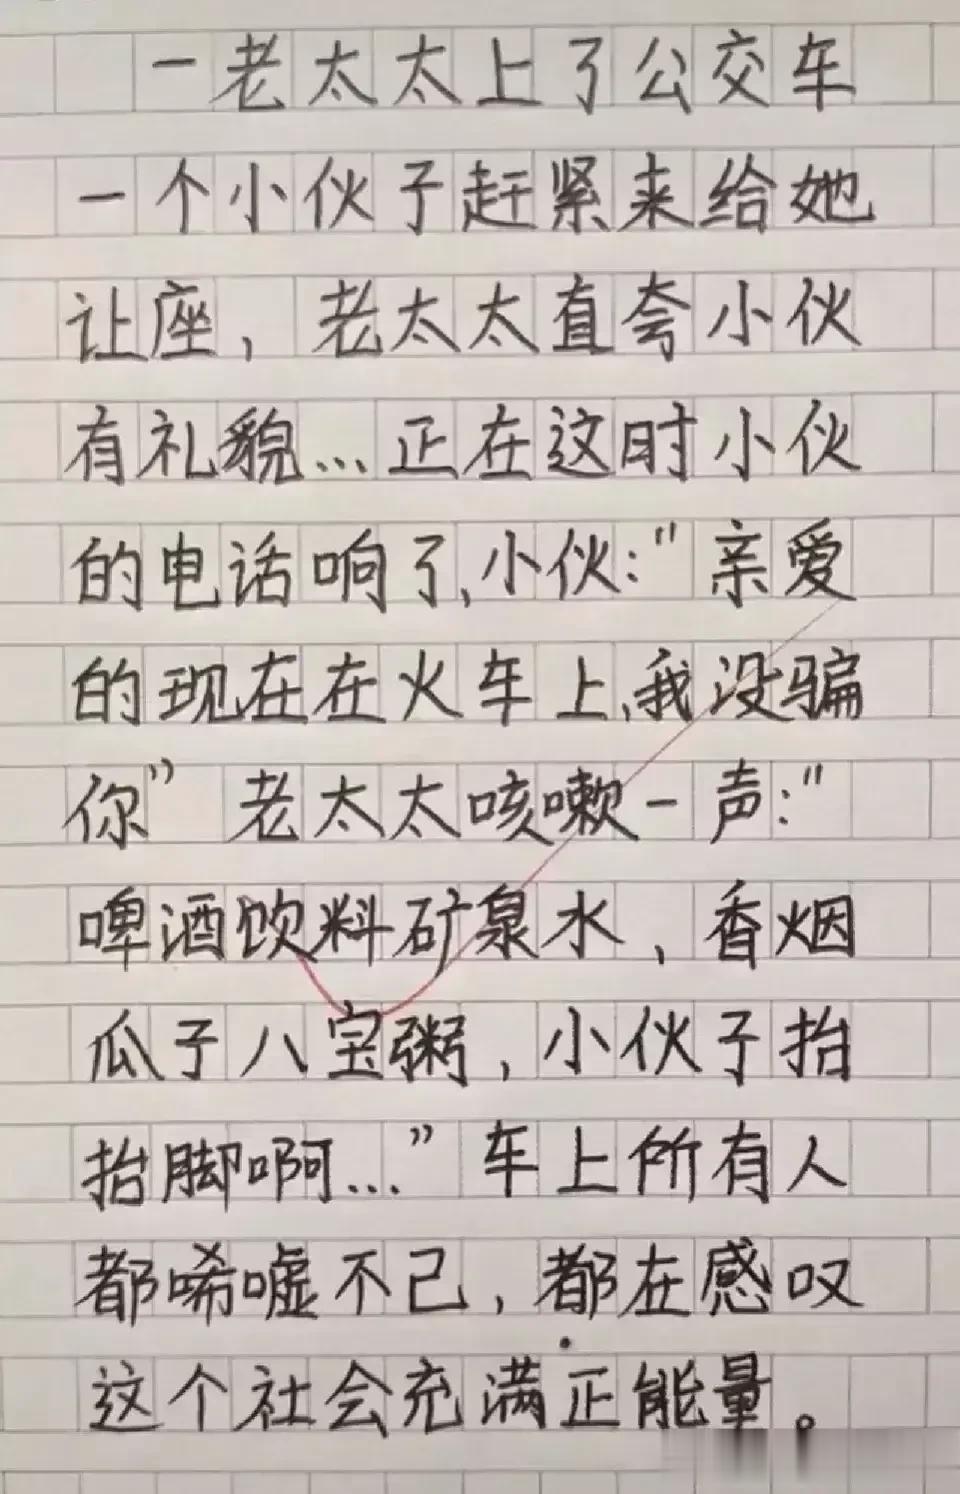 一老太太上了公交车
一个小伙子赶紧来给她
让座，老太太直夸小伙
有礼貌…正在这时小伙
的电话响了,小伙:"亲爱
的现在在火车上,我没骗
你” 老太太咳嗽一声:"
啤酒饮料矿泉水，香烟
瓜子八宝粥，小伙子抬
抬脚啊…” 车上所有人
都唏嘘不己，都在感叹
这个社会充满正能量。